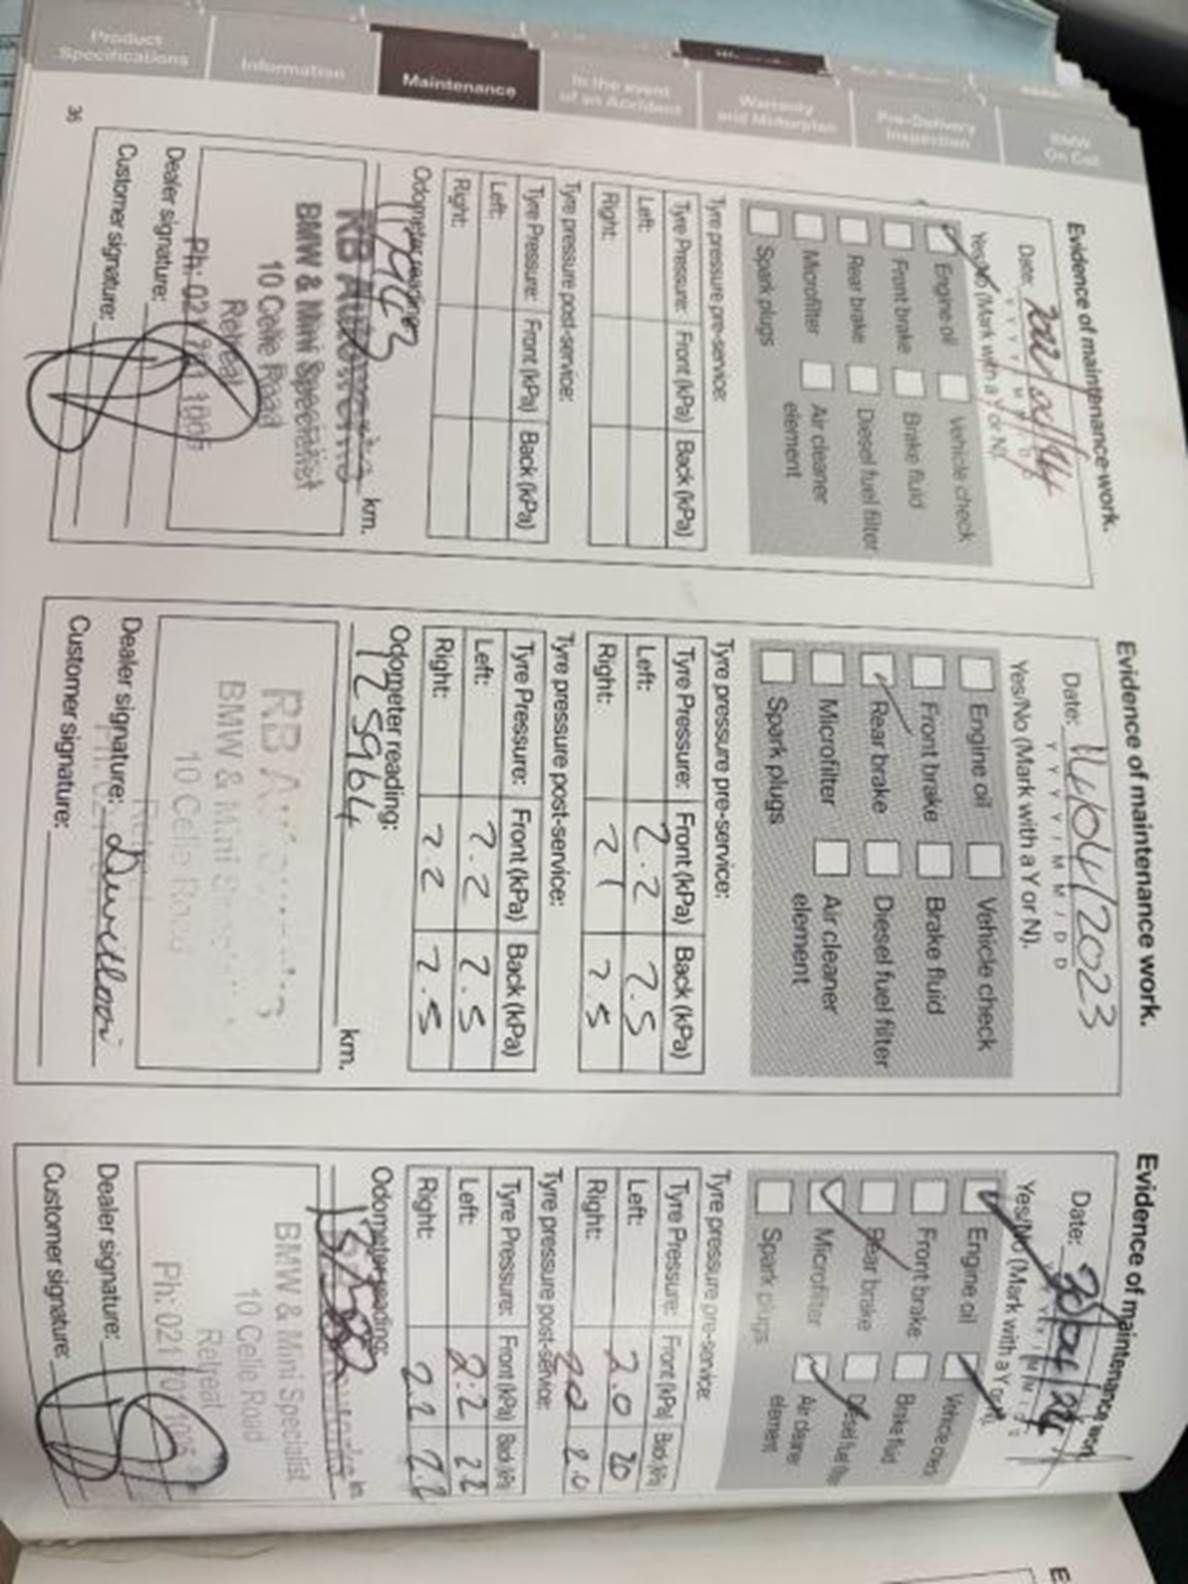 Product
Specifications
Information
Maintenance
In the event
of an Accident
Warranty
and Motorplan
Pre-Delivery
Inspection
BMW
On Call
Evidence of maintenance work.
Date:
Yes/No (Mark with a Y or N).
Engine oil
Vehicle check
Front brake
Brake fluid
Rear brake
Diesel fuel filter
Microfilter
Air cleaner
element
Spark plugs
Tyre pressure pre-service:
Tyre Pressure: Front (kPa) Back (kPa)
Left:
Right:
Tyre pressure post-service:
Tyre Pressure: Front (kPa) Back (kPa)
Left:
Right:
Odometer reading:
km.
BMW & Mini Specialist
10 Celie Road
Retreat
Dealer signature:
Customer signature:
36
Evidence of maintenance work.
Date: 14/04/2023
Y Y Y Y / M M / D D
Yes/No (Mark with a Y or N).
Engine oil
Vehicle check
Front brake
Brake fluid
Rear brake
Diesel fuel filter
Microfilter
Air cleaner
element
Spark plugs
Tyre pressure pre-service:
Tyre Pressure: Front (kPa) Back (kPa)
Left: 2.2 2.5
Right: 2 1 2.5
Tyre pressure post-service:
Tyre Pressure: Front (kPa) Back (kPa)
Left: 2.2 2.5
Right: 2.2 2.5
Odometer reading:
125964 km.
BMW & Mini
10 Celie Road
Dealer signature:
Customer signature:
Evidence of maintenance work
Date:
Yes/No (Mark with a Y or N).
Engine oil
Vehicle check
Front brake
Brake fluid
Rear brake
Diesel fuel filter
Microfilter
Air cleaner
element
Spark plugs
Tyre pressure pre-service:
Tyre Pressure: Front (kPa) Back (kPa)
Left: 2.0 20
Right: 20 2.0
Tyre pressure post-service:
Tyre Pressure: Front (kPa) Back (kPa)
Left: 2.2 22
Right: 2.2 2.2
Odometer reading:
km.
BMW & Mini Specialist
10 Celie Road
Retreat
Dealer signature:
Customer signature: